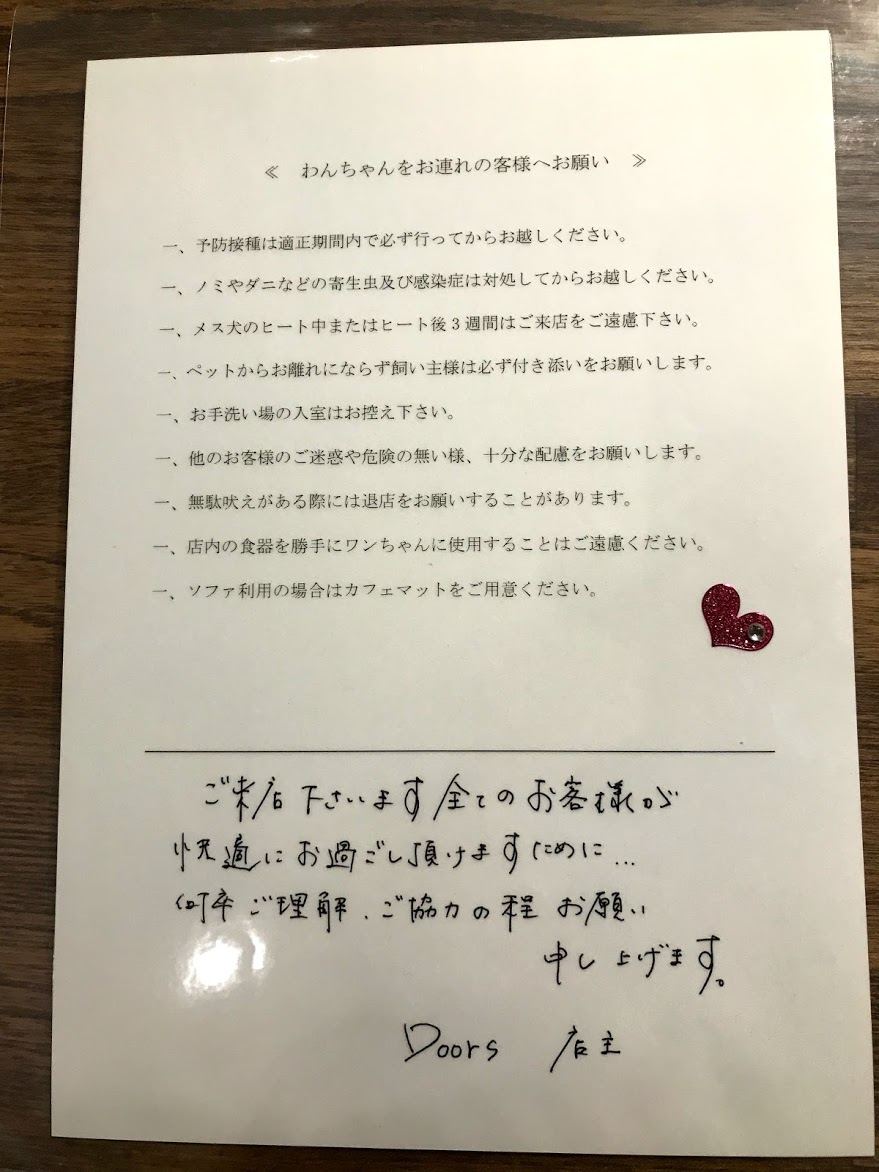 ≪ わんちゃんをお連れの客様へお願い ≫
一、予防接種は適正期間内で必ず行ってからお越しください。
一、ノミやダニなどの寄生虫及び感染症は対処してからお越しください。
一、メス犬のヒート中またはヒート後3週間はご来店をご遠慮下さい。
一、ペットからお離れにならず飼い主様は必ず付き添いをお願いします。
一、お手洗い場の入室はお控え下さい。
一、他のお客様のご迷惑や危険の無い様、十分な配慮をお願いします。
一、無駄吠えがある際には退店をお願いすることがあります。
一、店内の食器を勝手にワンちゃんに使用することはご遠慮ください。
一、ソファ利用の場合はカフェマットをご用意ください。
ご来店下さいます全てのお客様が
快適にお過ごし頂けますために…
何卒ご理解、ご協力の程 お願い
申し上げます。
Doors 店主